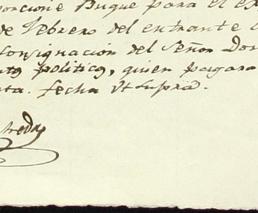 porcione Buque para el ex
de Febrero del entrante a
Consignacion del Señor Don
nto politico, quien pagara
ta. fecha Ut Supra.
reda